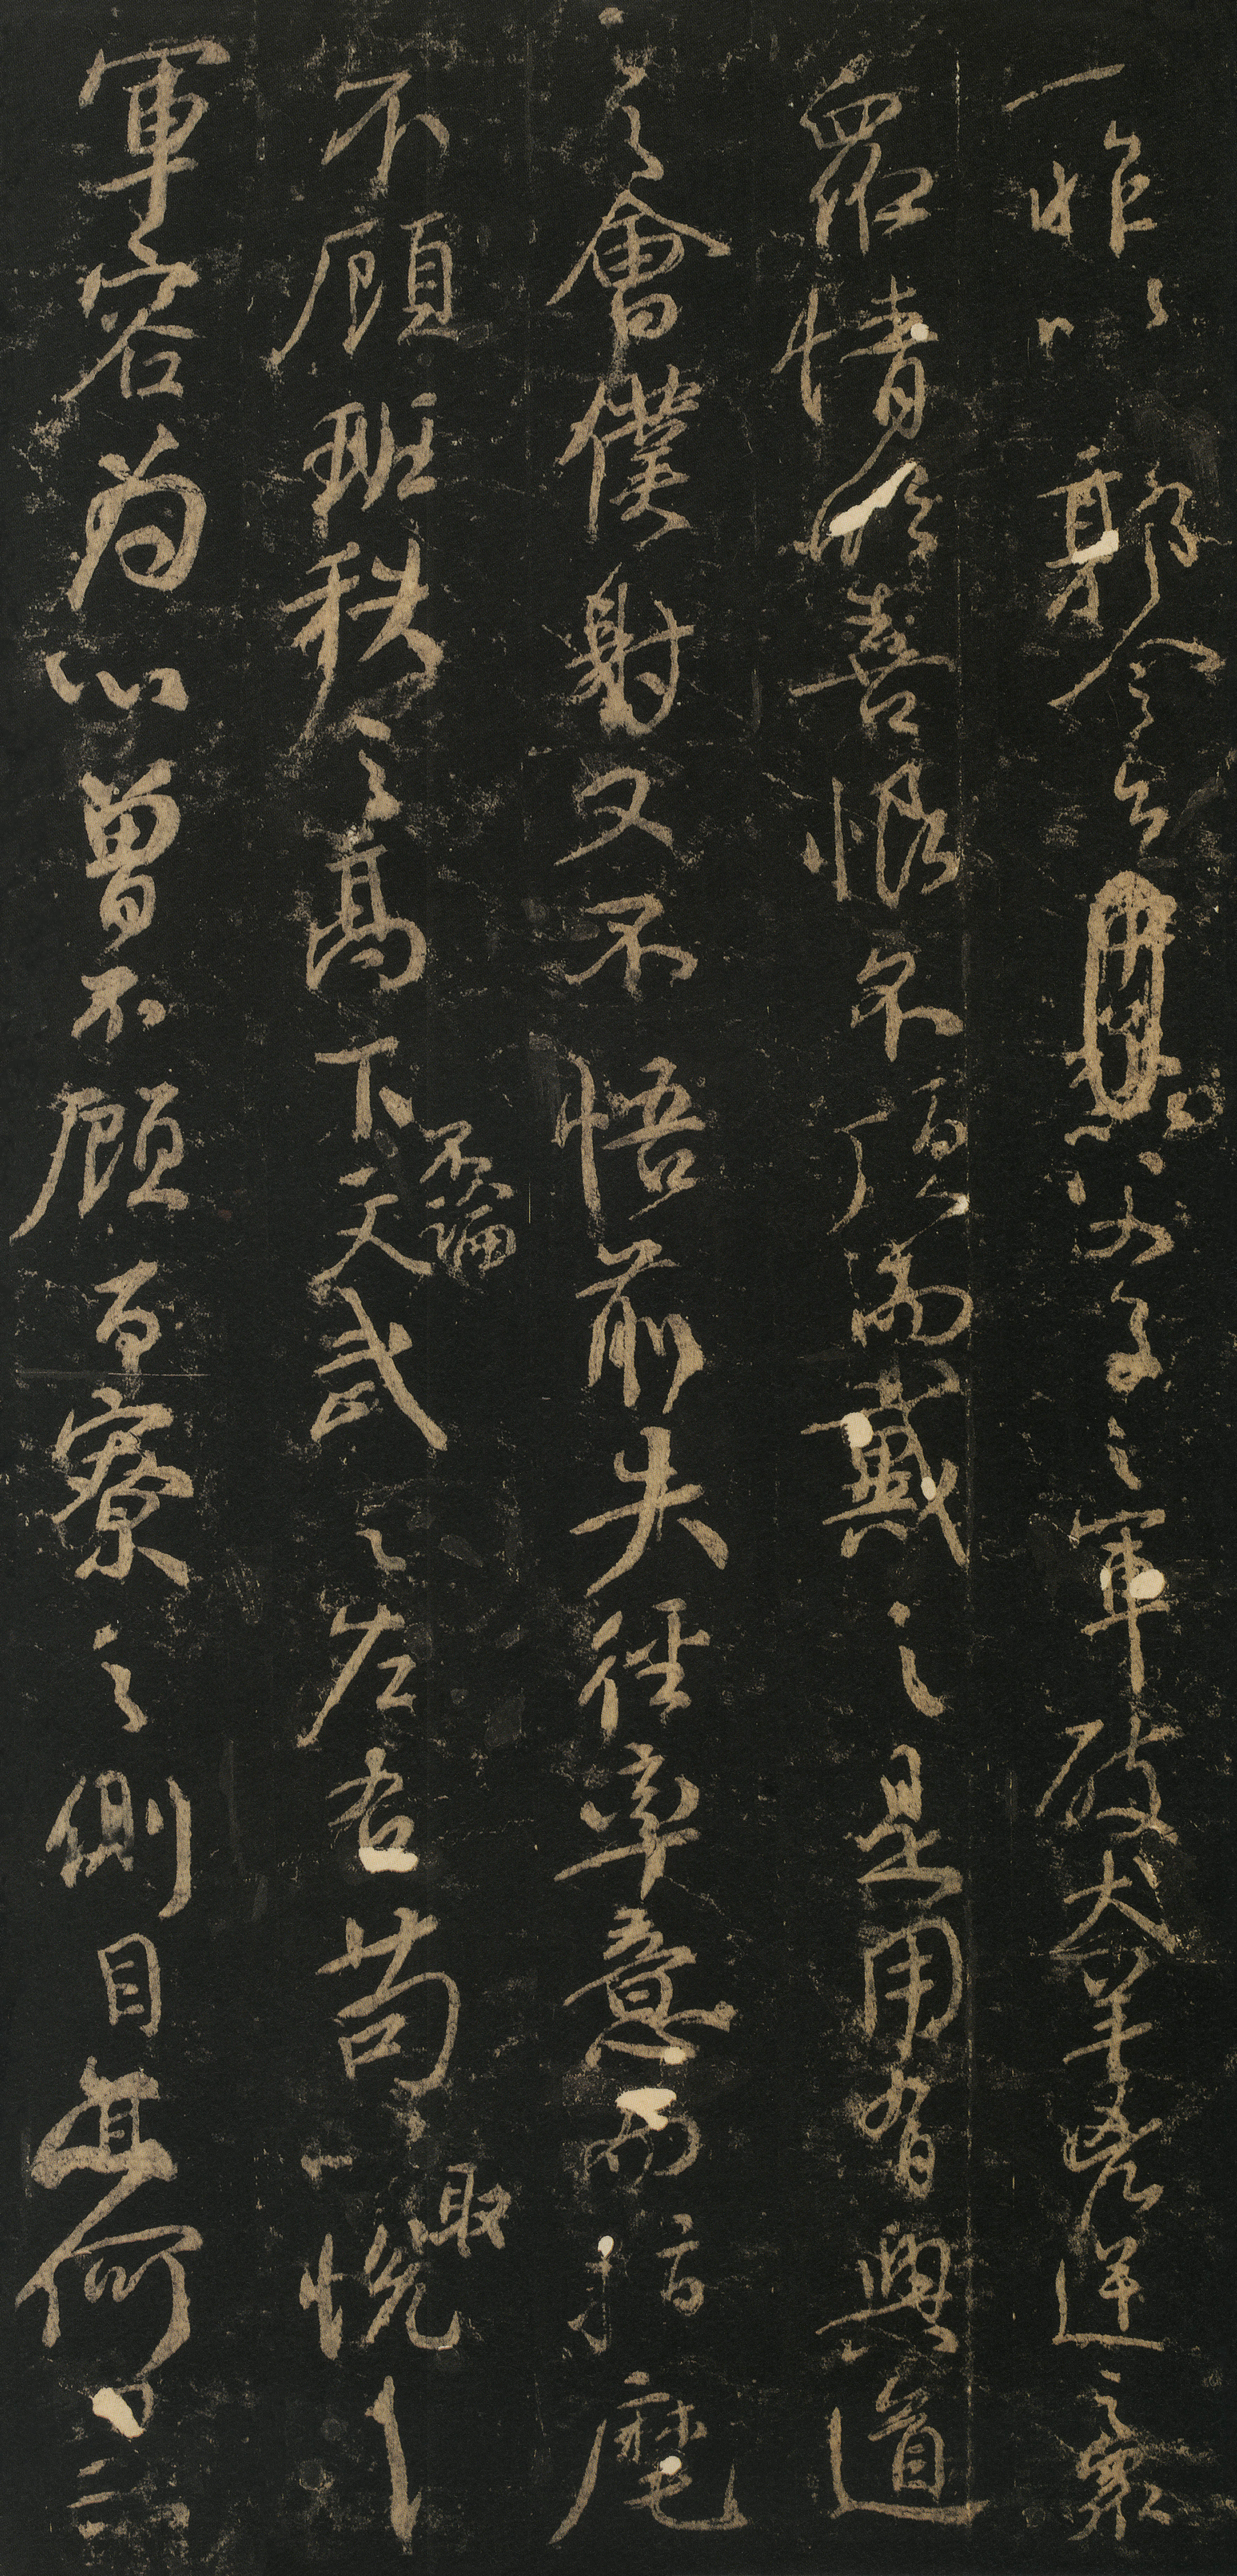 一昨以郭令公以父子之軍破犬羊凶逆之衆
衆情欣喜恨不頂而戴之是用有興道
之會僕射又不悟前失徑率意而指麾
不顧班秩之高下不論文武之左右苟以取悅
軍容為心曾不顧百寮之側目亦何